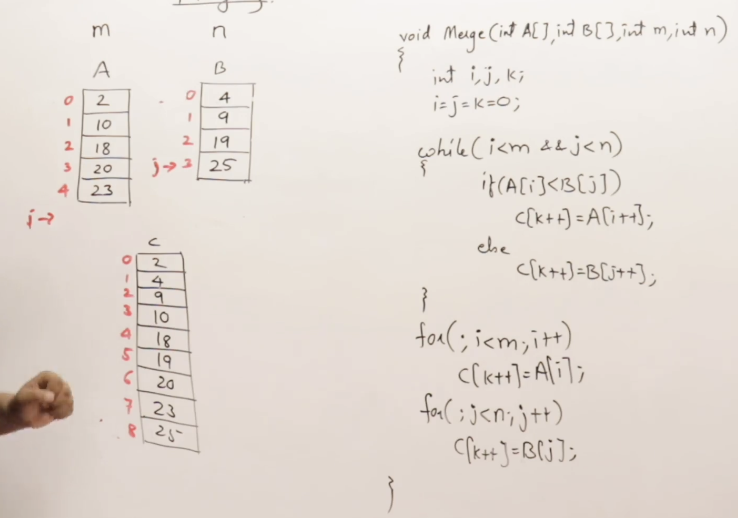 m n
A B
0 2
1 10
2 18
3 20
4 23
i→
0 4
1 9
2 19
j→ 3 25
C
0 2
1 4
2 9
3 10
4 18
5 19
6 20
7 23
8 25
void Merge(int A[],int B[],int m,int n)
{
int i,j,k;
i=j=k=0;
while(i<m && j<n)
{
if(A[i]<B[j])
C[k++]=A[i++];
else
C[k++]=B[j++];
}
for(;i<m;i++)
C[k++]=A[i];
for(;j<n;j++)
C[k++]=B[j];
}